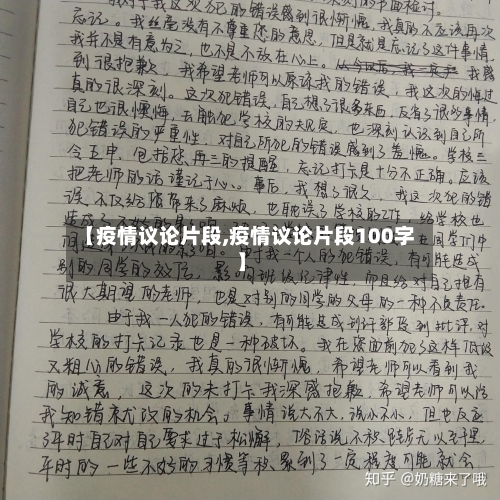 忘记。我丝毫没有不尊重您的意思，但是就是忘记了这件事情，
我并不是有意为之，也不是不放在心上。
到很抱歉，我希望老师可以原谅我的错误，我这次的悔过
真的很深刻。这次犯错误，自己想了很多东西，反省了很多事情，
自己也很懊悔，去触犯学校的
犯错误的严重性，对自己所犯的错误感到了羞愧。学校三
令五申，包括您再三的提醒，忘记打卡是十分不正确。应该
把老师的话谨记于心。事后，我想了很久，我这次犯的错
误，不仅给您带来了麻烦，也耽误了学校的工作，给学校也
【疫情议论片段,疫情议论片段100字
】
别的同学的效仿，影响班级纪律性，而且给对自己抱有
很大期望的老师，也是对别的同学的父母的一种不负责任。
由于我一人犯的错误，有可能造成别行部受到批评，对
学校的打卡记录也是一种破坏。我在您面前犯了这样低级
又粗心的错误，我真的很惭愧，希望老师可以看到我
的诚意，这次的未打卡我深感抱歉，希望老师可以给
我知错就改的机会。事情说大不大，说小不小，但也反应
了平时自己对自己要求过于松懈，俗话说不积跬步无以至千里，
平时的一些不好的习惯等积累到了一定程度可能就会
知乎 @奶糖来了哦